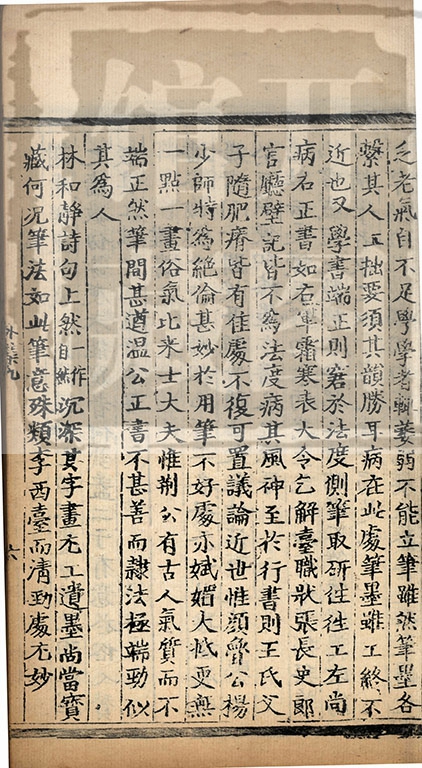 乏老氣自不足學學者輒萎弱不能立筆雖然筆墨各
繫其人工拙要須其韻勝耳病在此處筆墨雖工終不
近也又學書端正則窘於法度側筆取研往往工左尚
病右正書如右軍霜寒表大令乞解臺職狀張長史郎
官廳壁記皆不為法度病其風神至於行書則王氏父
子隨肥瘠皆有佳處不復可置議論近世惟顏魯公楊
少師特為絶倫甚妙於用筆不好處亦嫵媚大抵更無
一點一畫俗氣比來士大夫惟荆公有古人氣質而不
端正然筆間甚遒溫公正書不甚善而隸法極端勁似
其為人
林和靜詩句上然一作自然沉深其字畫尤工遺墨尚當寳
藏何况筆法如此筆意殊類李西臺而清勁處尤妙
六